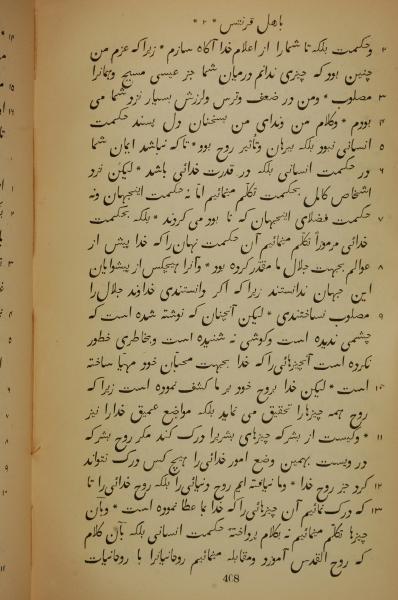 باهل قرنتس * ۲ *
۲ وحکمت بلکه تا شما را از اعلام خدا آگاه سازم * زیرا که عزم من
چنین بود که چیزی ندانم درمیان شما جز عیسی مسیح وهمانرا
۳ مصلوب * ومن در ضعف وترس ولرزش بسیار نزد شما می
۴ بودم * وکلام من وندای من بسخنان دل پسند حکمت
۵ انسانی نبود بلکه ببرهان وتأثیر روح بود * تا که نباشد ایمان شما
۶ در حکمت انسانی بلکه در قدرت خدائی باشد * لیکن نزد
اشخاص کامل بحکمت تکلّم مینمائیم امّا نه حکمت اینجهان ونه
۷ حکمت فضلای اینجهان که نا بود می کردند * بلکه بحکمت
خدائی مرموزاً تکلّم مینمائیم آن حکمت نهان را که خدا پیش از
۸ عوالم بجهت جلال ما مقدّر کرده بود * وآنرا هیچکس از پیشوایان
این جهان ندانستند زیرا که اکر وانستندی خداوند جلال را
۹ مصلوب نساختندی * لیکن آنچنان که نوشته شده است که
چشمی ندیده است وکوشی نه شنیده است وبخاطری خطور
نکرده است آنچیزهائی را که خدا بجهت محبّان خود مهیّا ساخته
۱۰ است * لیکن خدا بروح خود بر ما کشف نموده است زیرا که
روح همه چیزها را تحقیق می نماید بلکه مواضع عمیق خدا را نیز
۱۱ * وکیست از بشر که چیزهای بشر را درک کند مکر روح بشر که
در ویست بهمین وضع امور خدائی را هیچ کس درک نتواند
۱۲ کرد جز روح خدا * وما نیافته ایم روح دنیائی را بلکه روح خدائی را تا
۱۳ که درک نمائیم آن چیزهائی را که خدا بما عطا نموده است * وبآن
چیزها تکلّم مینمائیم نه بکلام پرداخته حکمت انسانی بلکه بآن کلام
که روح القدس آموزد ومقابله مینمائیم روحانیانرا با روحانیات
408